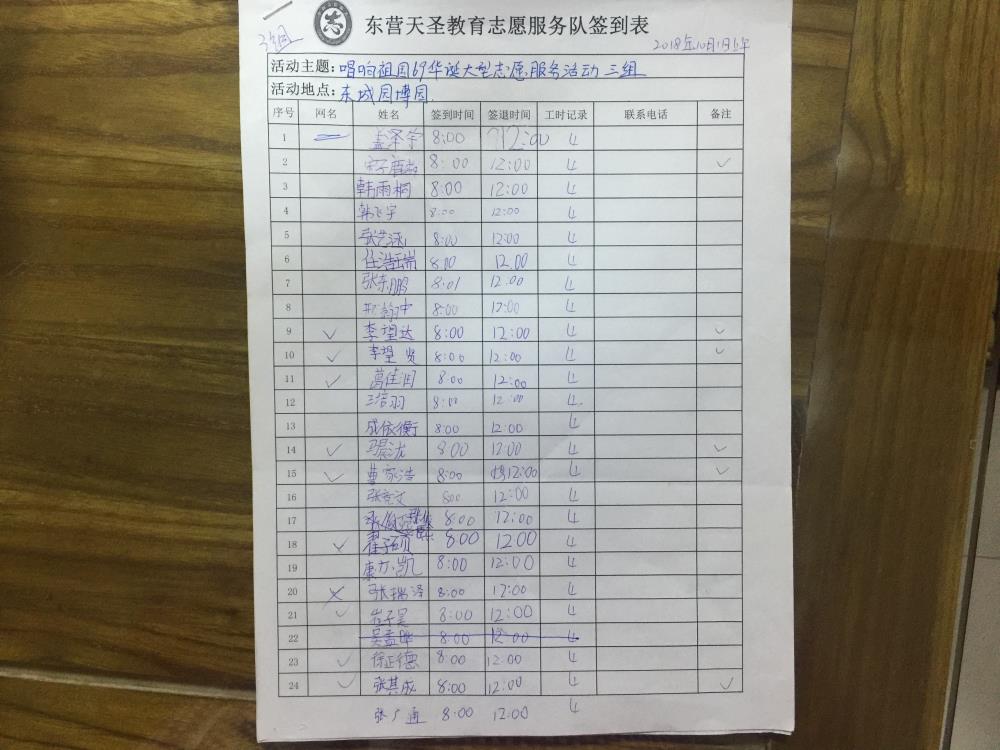 志
东营天圣教育志愿服务队签到表
三组
2018年10月1日上午
活动主题:唱响祖国69华诞大型志愿服务活动 三组
活动地点:东城园博园
序号 网名 姓名 签到时间 签退时间 工时记录 联系电话 备注
1 孟泽宇 8:00 12:00 4
2 8:00 12:00 4 ✓
3 韩雨桐 8:00 12:00 4
4 韩飞宇 8:00 12:00 4
5 张艺涵 8:00 12:00 4
6 任浩瑞 8:00 12:00 4
7 张东鹏 8:01 12:00 4
8 邢翰中 8:00 12:00 4
9 ✓ 李望达 8:00 12:00 4 ✓
10 ✓ 李望贤 8:00 12:00 4 ✓
11 ✓ 葛佳润 8:00 12:00 4
12 王培羽 8:00 12:00 4
13 成依衡 8:00 12:00 4
14 ✓ 冯晨龙 8:00 12:00 4 ✓
15 ✓ 曹家浩 8:00 12:00 4 ✓
16 8:00 12:00 4
17 8:00 12:00 4
18 ✓ 翟子硕 8:00 12:00 4
19 8:00 12:00 4
20 × 张瑞泽 8:00 12:00 4
21 ✓ 崔子昊 8:00 12:00 4
22 吴孟晔 8:00 12:00 4
23 ✓ 徐正德 8:00 12:00 4
24 ✓ 张其成 8:00 12:00 4 ✓
张广通 8:00 12:00 4